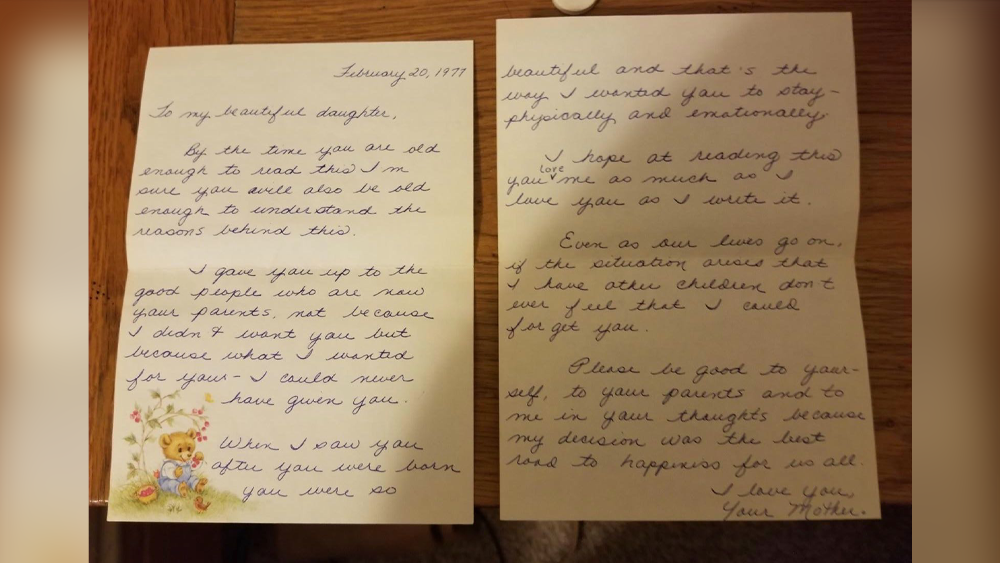 February 20, 1977
To my beautiful daughter,
By the time you are old
enough to read this I'm
sure you will also be old
enough to understand the
reasons behind this.
I gave you up to the
good people who are now
your parents, not because
I didn't want you but
because what I wanted
for your - I could never
have given you.
When I saw you
after you were born
you were so
beautiful and that's the
way I wanted you to stay -
physically and emotionally.
I hope at reading this
you love me as much as I
love you as I write it.
Even as our lives go on,
if the situation arises that
I have other children don't
ever feel that I could
forget you.
Please be good to your-
self, to your parents and to
me in your thoughts because
my decision was the best
road to happiness for us all.
I love you,
Your Mother.